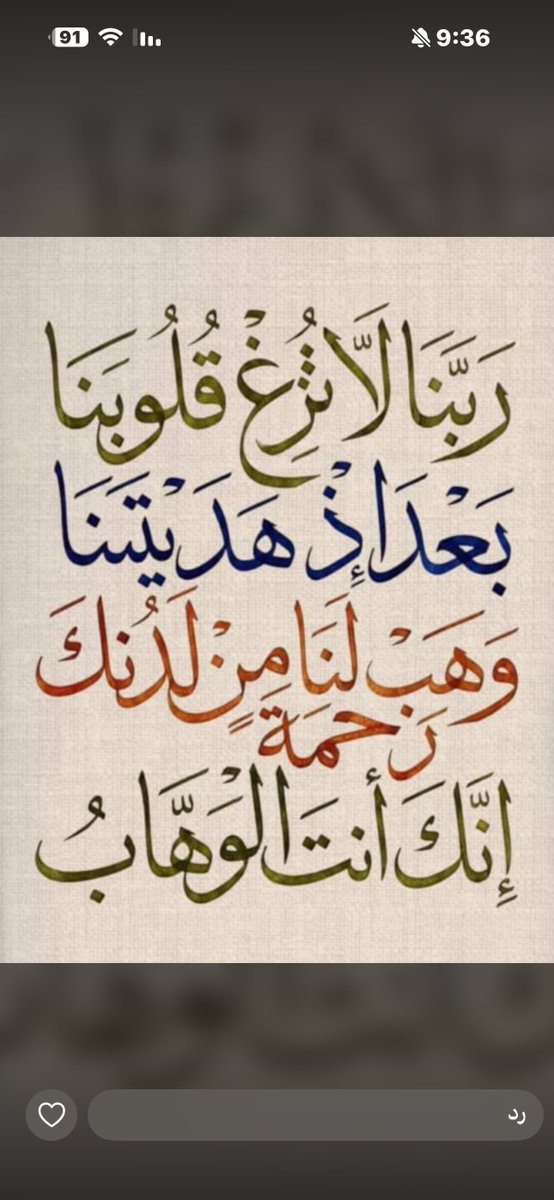 91
9:36
رَبَّنَا لَا تُزِغْ قُلُوبَنَا
بَعْدَ إِذْ هَدَيْتَنَا
وَهَبْ لَنَا مِنْ لَدُنكَ
رَحْمَةً
إِنَّكَ أَنتَ الْوَهَّابُ
رد